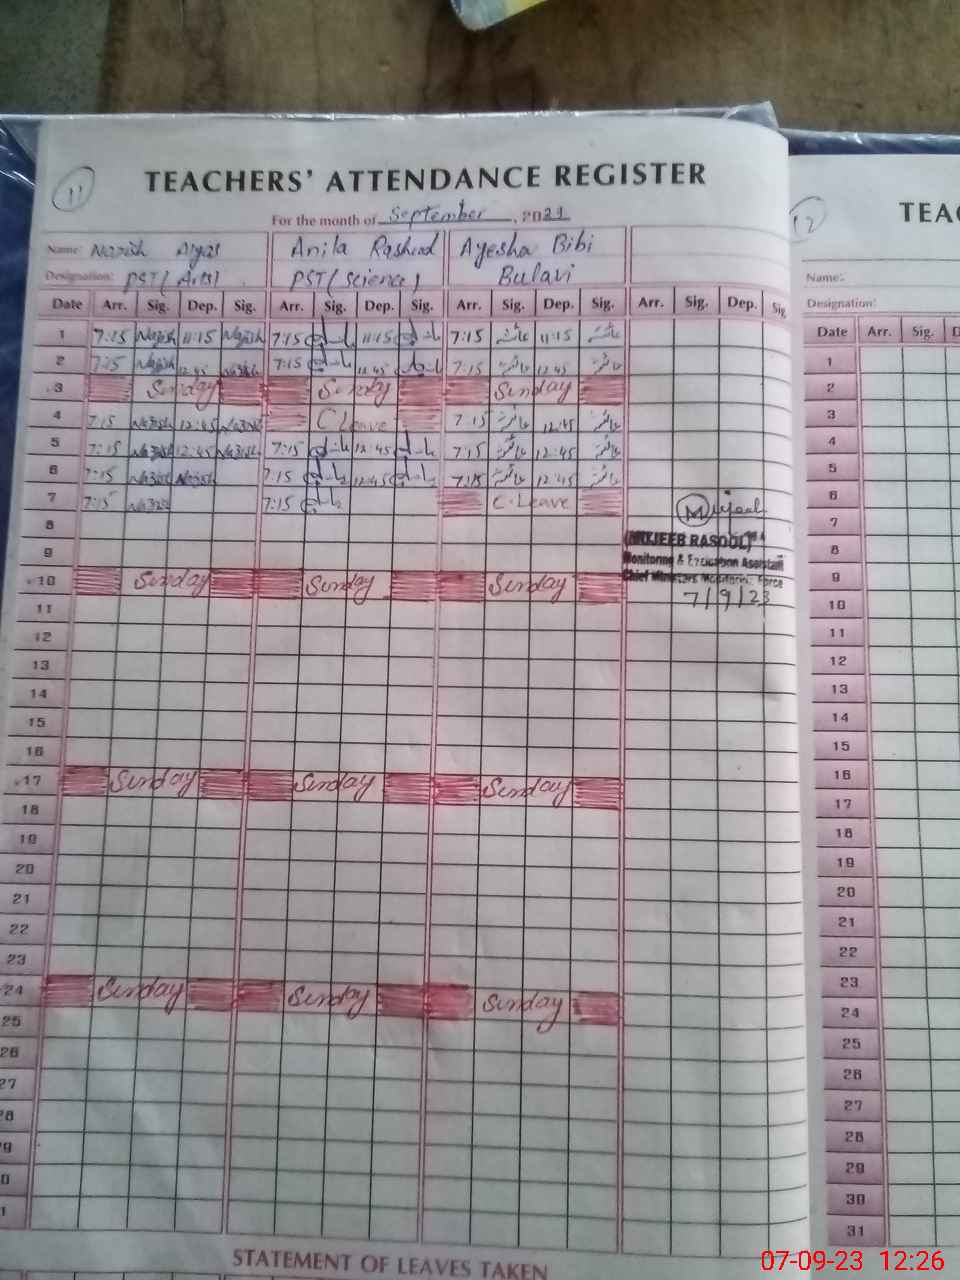 11
TEACHERS' ATTENDANCE REGISTER
For the month of September, 2021
Name: Nazish Anila Rashid Ayesha Bibi
Designation: PST (Arts) PST (Science) Bulavi
Date Arr. Sig. Dep. Sig. Arr. Sig. Dep. Sig. Arr. Sig. Dep. Sig. Arr. Sig. Dep. Sig.
1 7:15 Nazish 11:15 Nazish 7:15 11:15 7:15 عائشہ 11:15 عائشہ
2 7:15 Nazish 12:45 Nazish 7:15 12:45 7:15 عائشہ 12:45 عائشہ
3 Sunday Sunday Sunday
4 7:15 Nazish 12:45 Nazish C Leave 7:15 عائشہ 12:45 عائشہ
5 7:15 Nazish 12:45 Nazish 7:15 12:45 7:15 عائشہ 12:45 عائشہ
6 7:15 Nazish Nazish 7:15 12:45 7:15 عائشہ 12:45 عائشہ
7 7:15 Nazish 7:15 C. Leave
8
9
10 Sunday Sunday Sunday
11
12
13
14
15
16
17 Sunday Sunday Sunday
18
19
20
21
22
23
24 Sunday Sunday Sunday
25
26
27
28
9
0
1
Mujeeb
(MUJEEB RASOOL)
Monitoring & Evaluation Assistant
Chief Ministers Monitoring Force
7/9/23
STATEMENT OF LEAVES TAKEN
12
TEAC
Name:
Designation:
Date Arr. Sig. D
1
2
3
4
5
6
7
8
9
10
11
12
13
14
15
16
17
18
19
20
21
22
23
24
25
26
27
28
29
30
31
07-09-23 12:26